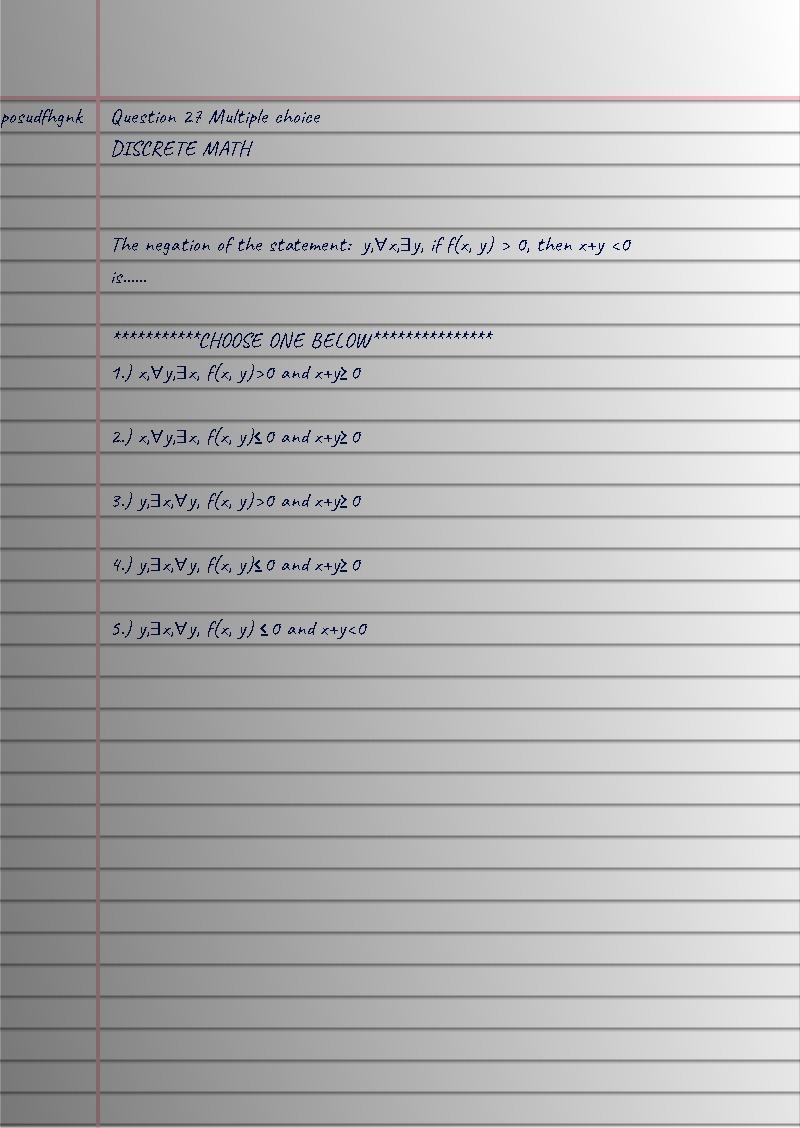 posudfhgnk Question 27 Multiple choice
DISCRETE MATH
The negation of the statement: y,∀x,∃y, if f(x, y) > 0, then x+y <0
is......
***********CHOOSE ONE BELOW***************
1.) x,∀y,∃x, f(x, y)>0 and x+y≥ 0
2.) x,∀y,∃x, f(x, y)≤ 0 and x+y≥ 0
3.) y,∃x,∀y, f(x, y)>0 and x+y≥ 0
4.) y,∃x,∀y, f(x, y)≤ 0 and x+y≥ 0
5.) y,∃x,∀y, f(x, y) ≤ 0 and x+y<0